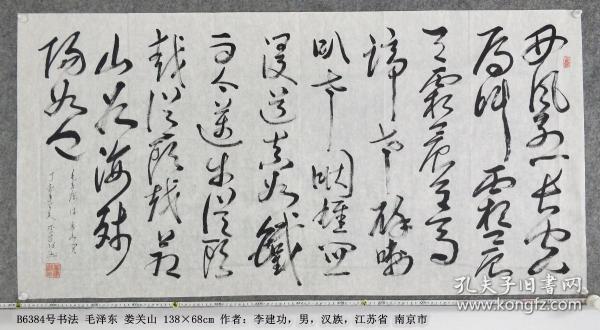 西风烈长空
雁叫霜晨
月霜晨月马
蹄声碎喇
叭声咽雄关
漫道真如铁
而今迈步从头
越从头越苍
山如海残
阳如血
毛主席词娄山关
丁亥年 李建功
B6384号书法 毛泽东 娄关山 138×68cm 作者：李建功，男，汉族，江苏省 南京市
孔夫子旧书网